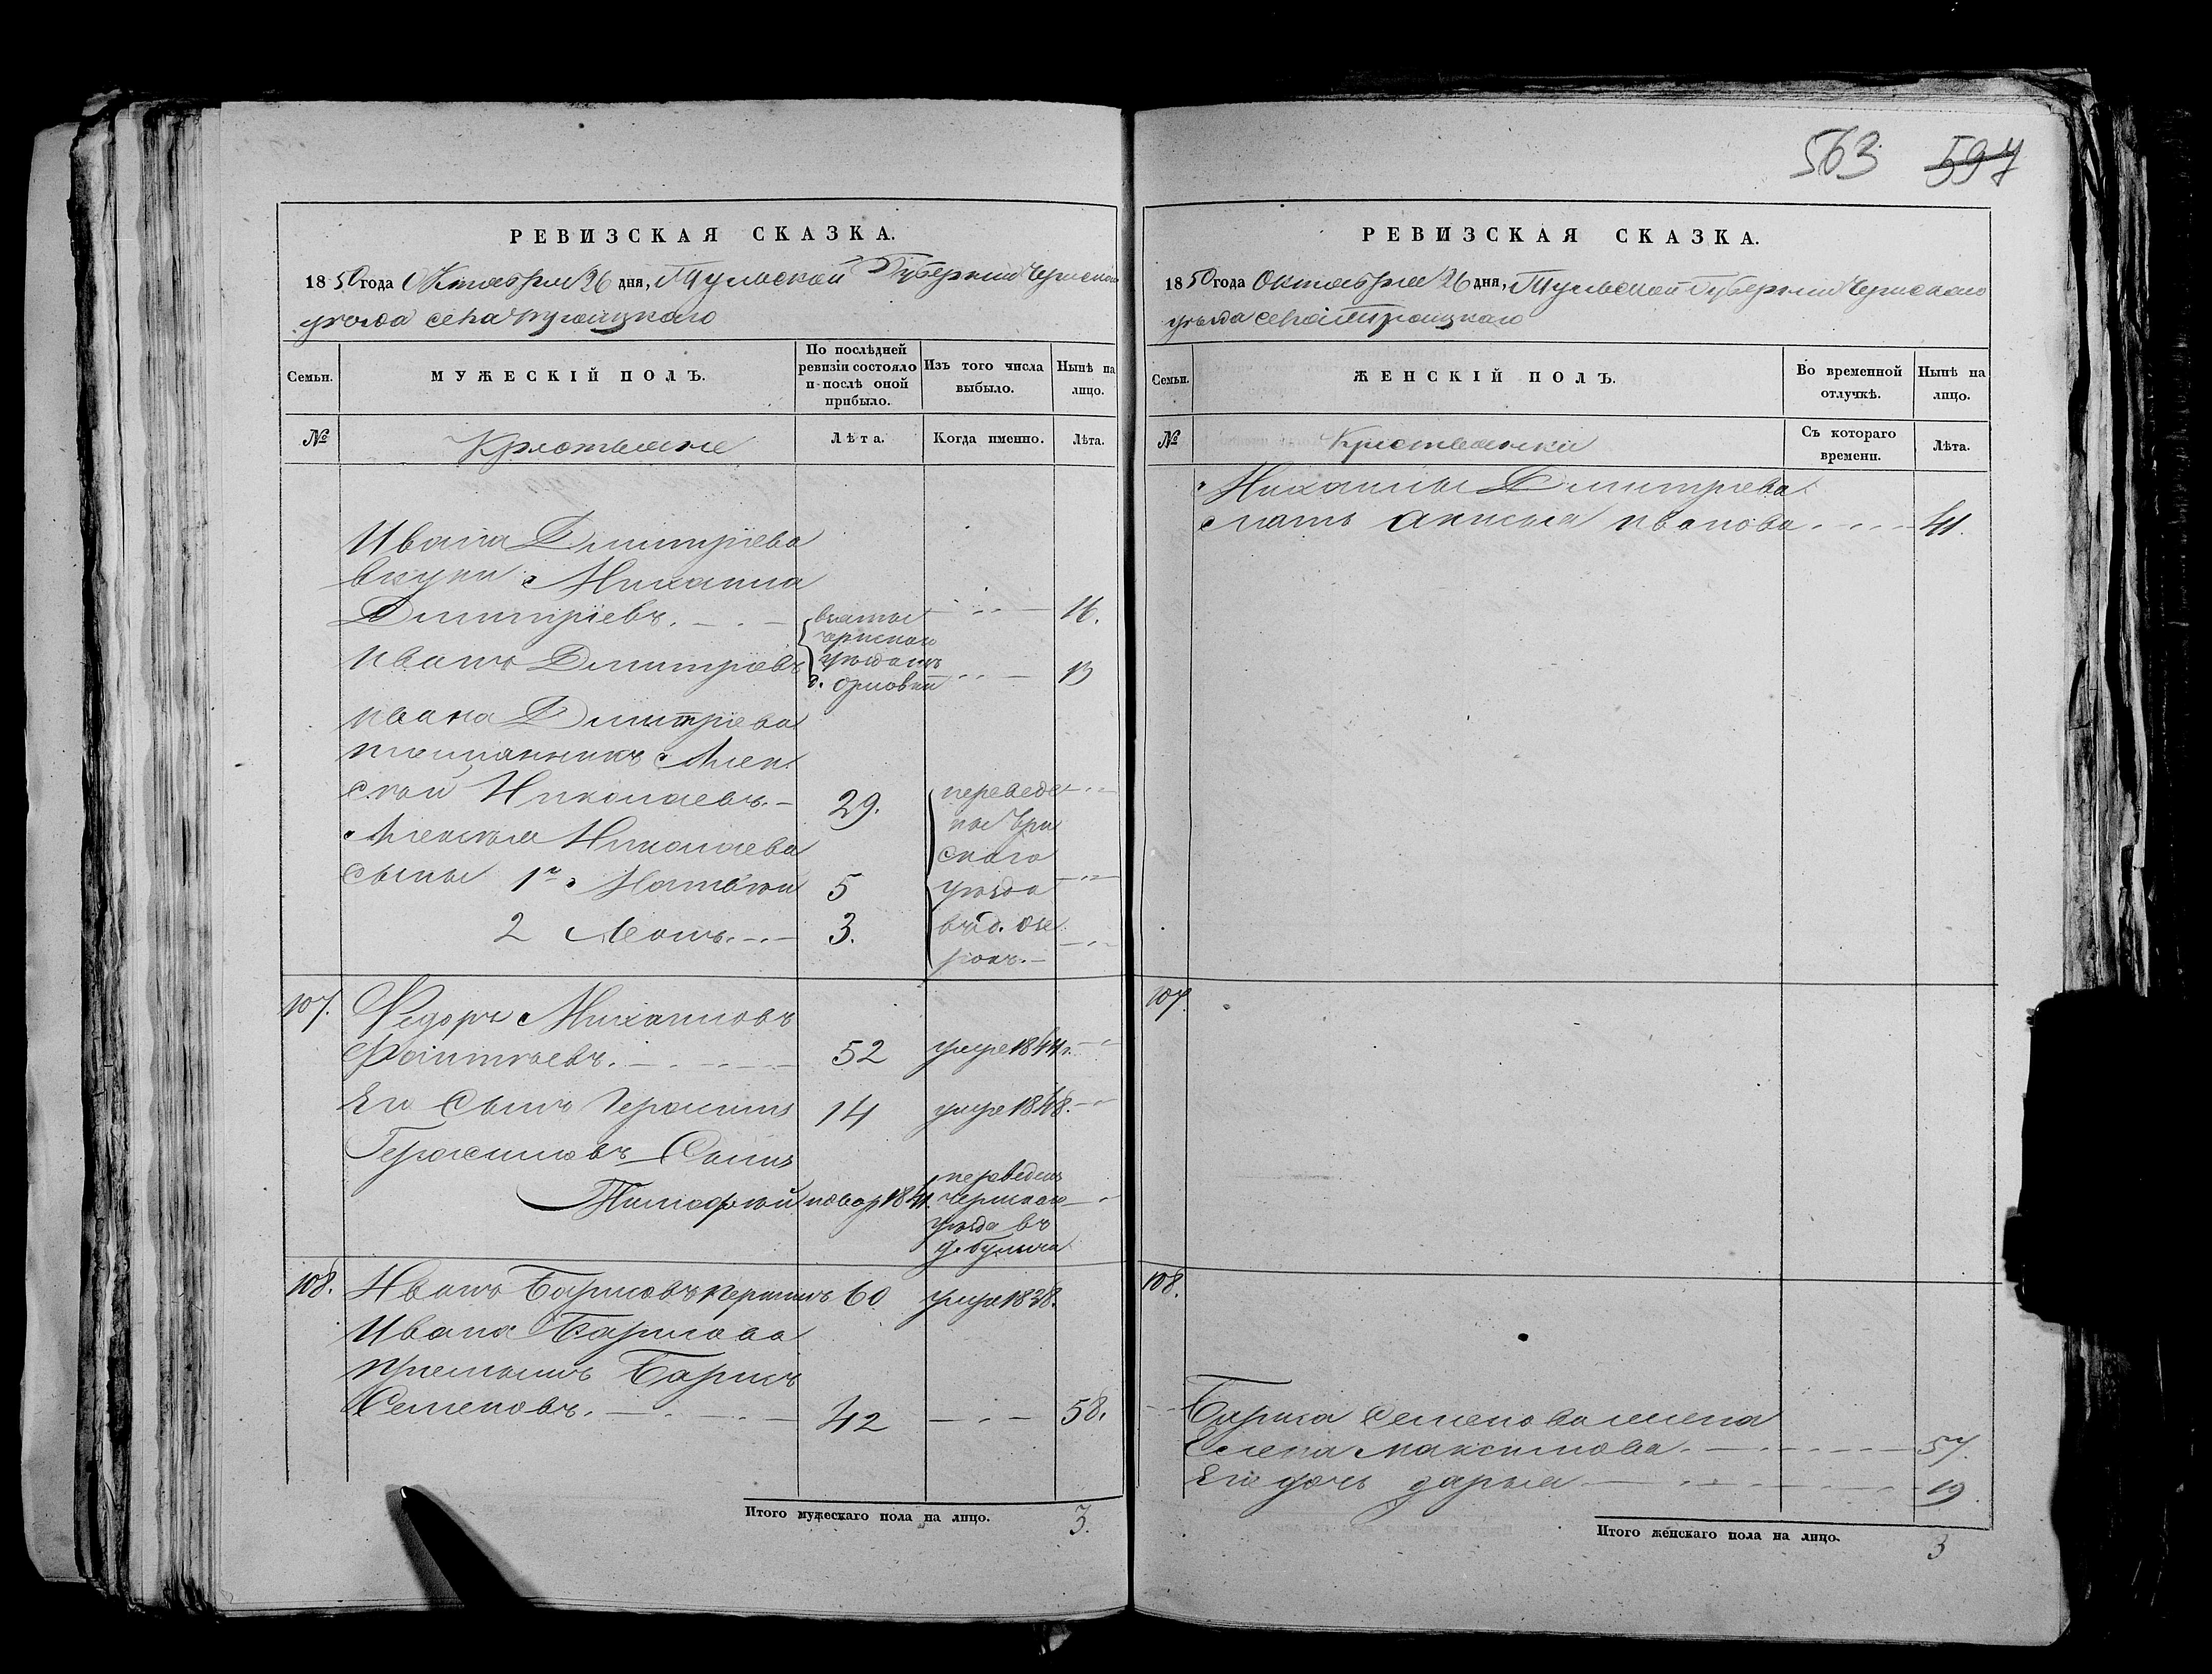 563 597
РЕВИЗСКАЯ СКАЗКА.
1850 года Октября 26 дня, Тульской Губернии Чернскаго
уѣзда села Троицкаго
Семьи.
МУЖЕСКІЙ ПОЛЪ.
По послѣдней ревизіи состояло и послѣ оной прибыло.
Изъ того числа выбыло.
Нынѣ на лицо.
№
Крестьяне
Лѣта.
Когда именно.
Лѣта.
Ивана Дмитріева
внуки Михаила
Дмитріевъ. 16.
Иванъ Дмитріевъ 13
взяты
Чернскаго
уѣзда изъ
д. Орловки
Ивана Дмитріева
племянникъ Алек
сѣй Николаевъ. 29.
Алексѣя Николаева
сыны 1й Матвѣй 5
2 Леонъ 3.
переведе
ны Черн
скаго
уѣзда
въ д. Озе
рокъ.
107. Федоръ Михаиловъ
52 умре 1844г.
Его Сынъ Герасимъ 14 умре 1848.
Герасимовъ Сынъ
Тимофѣй новор 1841.
переведенъ
Чернскаго
уѣзда въ
108. Иванъ Барисовъ 60 умре 1838.
Ивана Барисова
приемышъ Барисъ
Семеновъ. 42 58.
Итого мужескаго пола на лицо. 3.
РЕВИЗСКАЯ СКАЗКА.
1850 года Октября 26 дня, Тульской Губернии Чернскаго
уѣзда села Троицкаго
Семьи.
ЖЕНСКІЙ ПОЛЪ.
Во временной отлучкѣ.
Нынѣ на лицо.
№
Крестьянки
Съ котораго времени.
Лѣта.
Михаилы Дмитрева
мать Анисья Иванова 41.
107.
108.
Бариса Семенова жена
Елена Максимова. 57.
Его дочь Дарья 19
Итого женскаго пола на лицо. 3